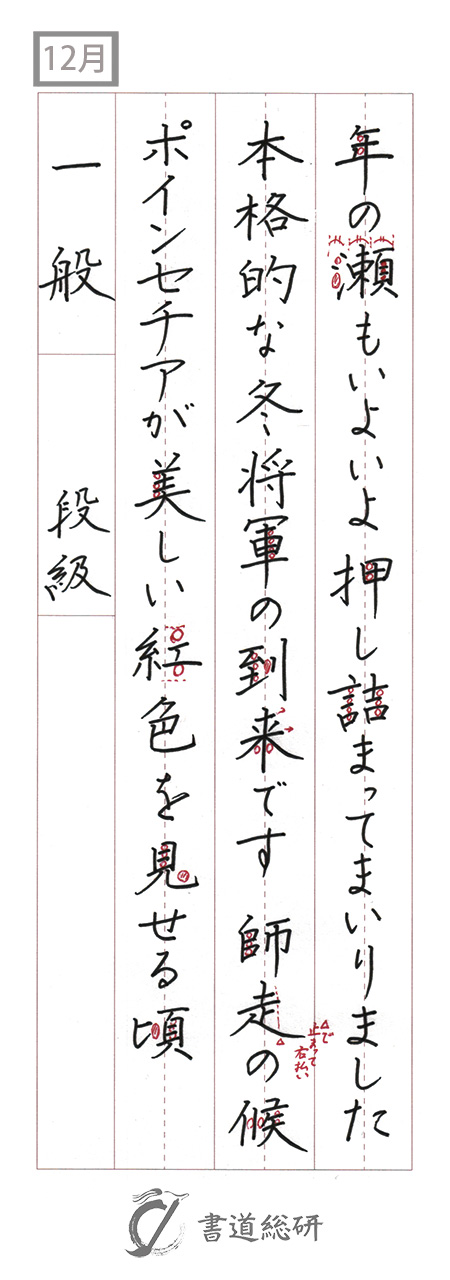 12月
年の瀬もいよいよ押し詰まってまいりました
本格的な冬将軍の到来です 師走の候
△で
止まって
右払い
ポインセチアが美しい紅色を見せる頃
一般 段級
書道総研